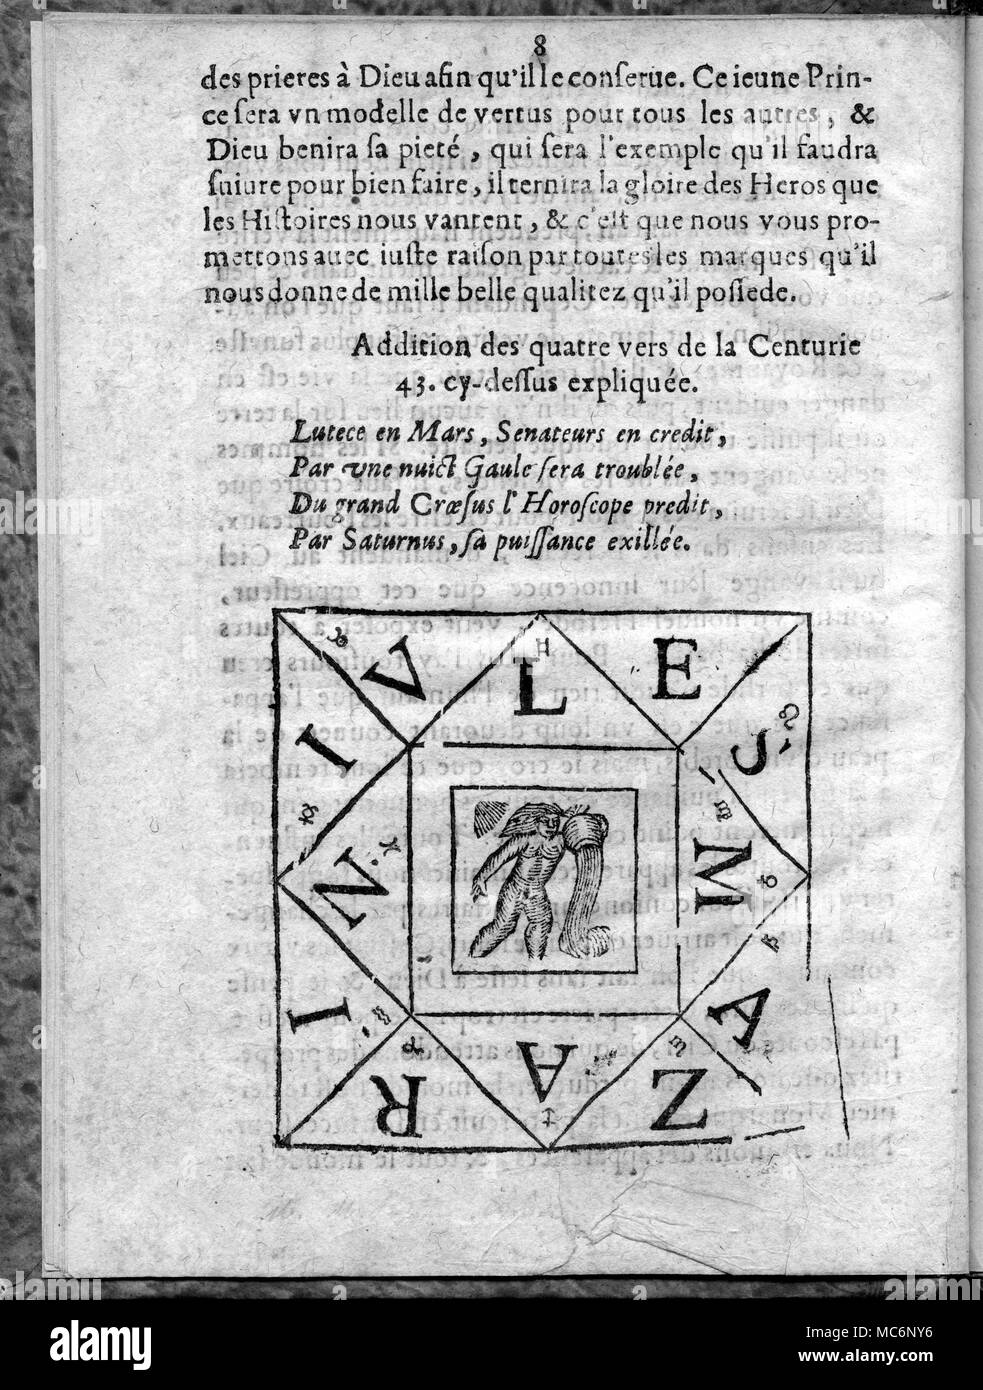 8
des prieres à Dieu afin qu'il le conſerue. Ce ieune Prin-
ce ſera vn modelle de vertus pour tous les autres, &
Dieu benira ſa pieté, qui ſera l'exemple qu'il faudra
ſuiure pour bien faire, il ternira la gloire des Heros que
les Hiſtoires nous vantent, & c'eſt que nous vous pro-
mettons auec iuſte raiſon par toutes les marques qu'il
nous donne de mille belle qualitez qu'il poſſede.
Addition des quatre vers de la Centurie
43. cy-deſſus expliquée.
Lutece en Mars, Senateurs en credit,
Par vne nuict Gaule ſera troublée,
Du grand Crœſus l'Horoſcope predit,
Par Saturnus, ſa puiſſance exillée.
L E S M A Z A R I N I V
alamy
Image ID: MC6NY6
www.alamy.com